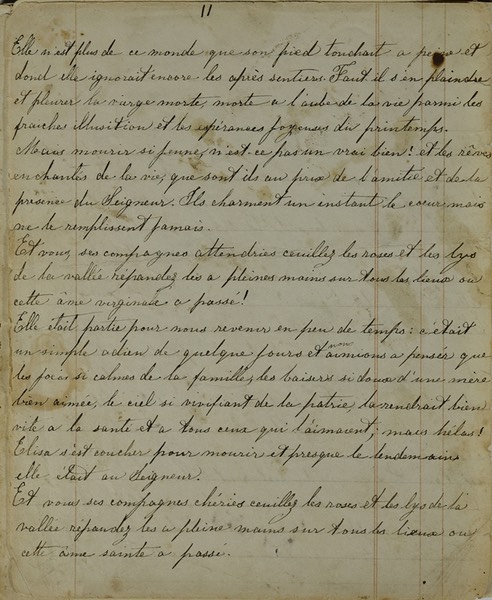 11
Elle n'est plus de ce monde que son pied touchait a peine et
dond elle ignorait encore les après sentiers. Faut il s'en plaindre
et pleurer la vierge morte, morte a l'aube de la vie parmi les
fraiches illusition et les espérances joyeuses du printemps.
Mais mourir si jeune, n'est-ce pas un vrai bien! et les rêves
enchantés de la vie, que sont ils au prix de l'amitié et de la
presence du Seigneur. Ils charment un instant le coeur mais
ne le remplissent jamais.
Et vous, ses compagnes attendries ceuillez les roses et les lys
de la vallée répandez les a pleines mains sur tous les lieux ou
cette âme virginale a passé!
Elle était partie pour nous revenir en peu de temps: c'était
un simple adieu de quelque jours et nous aimions a penser que
les joies si calmes de la famille, les baisers si doux d'une mère
bien aimée, le ciel si vivifiant de la patrie la rendrait bien
vite a la santé et a tous ceux qui l'aimaient; mais hélas!
Elisa s'est coucher pour mourir et presque le lendemain
elle était au Seigneur.
Et vous ses compagnes chéries ceuillez les roses et les lys de la
vallée répandez les a pleine mains sur tous les lieux ou
cette âme sainte a passé.